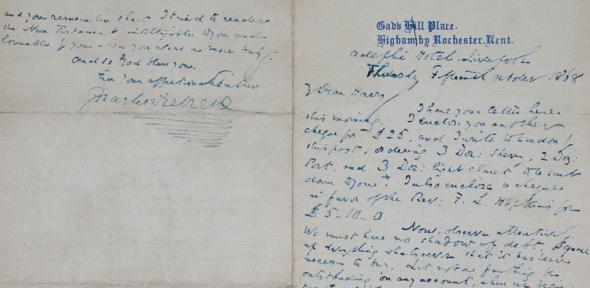 and you remember that I tried to render
the New Testament intelligible to you and
lovable by you when you were a mere baby.
and so God bless you.
Ever your affectionate Father
Charles Dickens
Gad's Hill Place,
Higham by Rochester, Kent.
Adelphi Hotel Liverpool
Thursday Fifteenth October 1868
My Dear Harry
I have your letter here
this morning. I enclose you another
cheque for £25, and I write to London by
this post, ordering 3 Doz: Sherry, 2 Doz:
Port, and 3 Doz: light claret to be sent
down to you. I also enclose a cheque
in favor of the Rev: F. L. Hopkins for
£5..10..0.
Now, observe attentively.
We must have no shadow of debt. Square
up everything whatsoever that it has been
necessary to buy. Let not a farthing be
outstanding on any account, when we begin